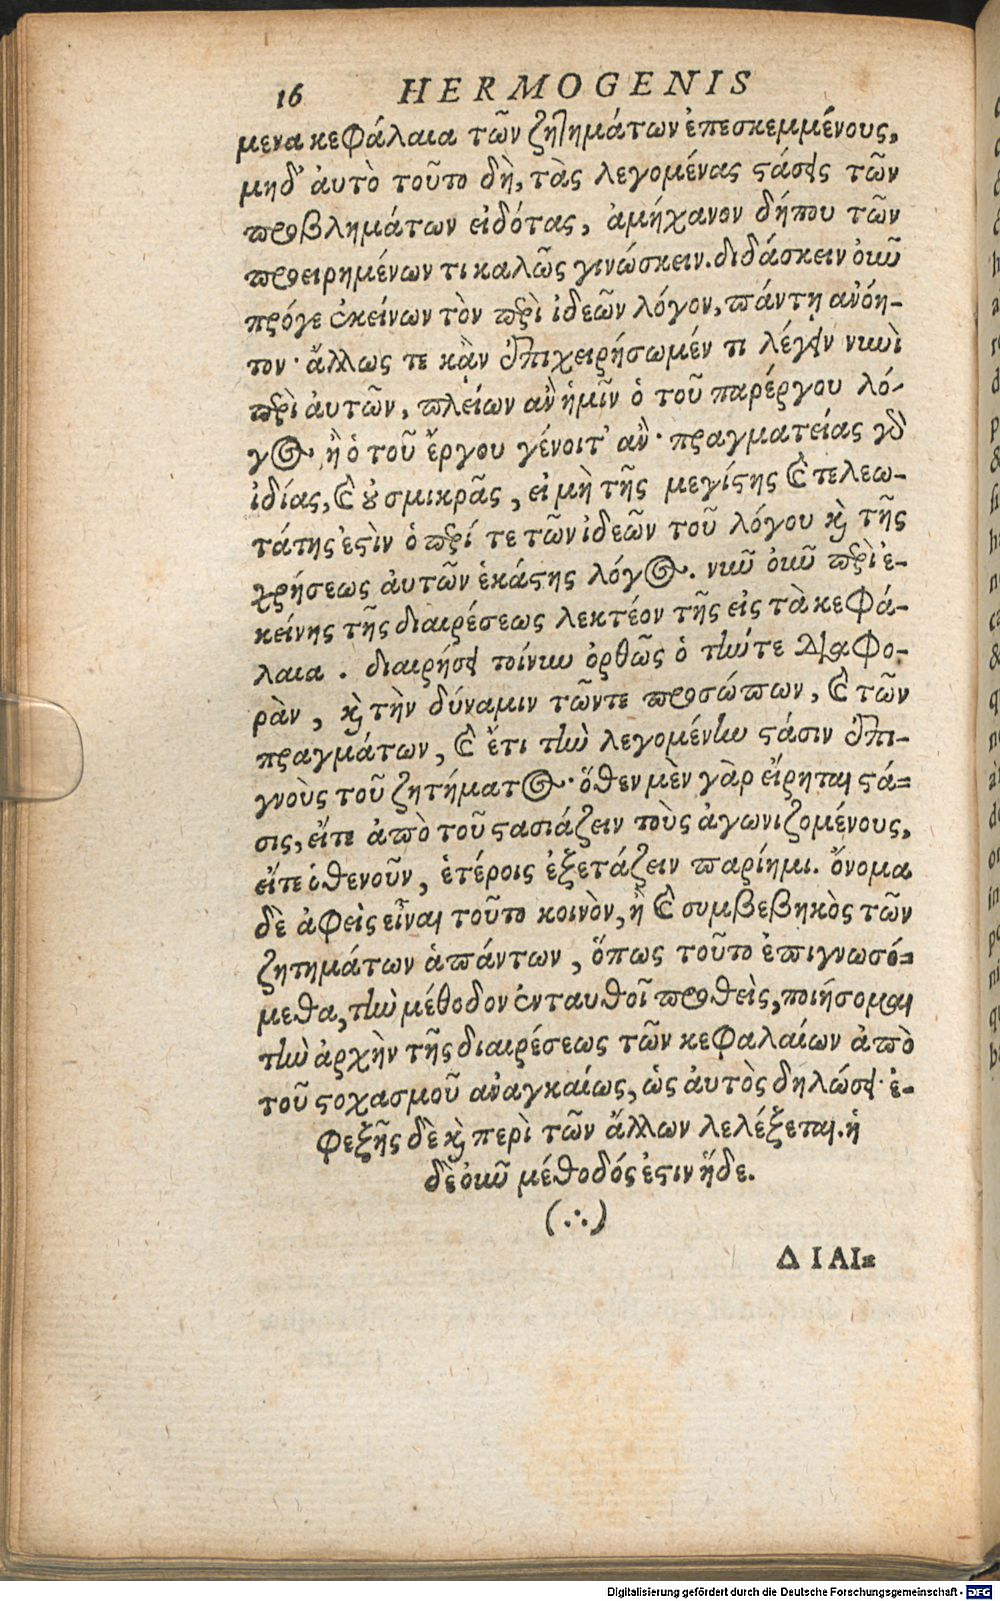 16 HERMOGENIS
μενα κεφάλαια τῶν ζητημάτων ἐπεσκεμμένους,
μηδ' ἀυτὸ τοῦτο δὴ, τὰς λεγομένας στάσεις τῶν
προβλημάτων εἰδότας, ἀμήχανον δήπου τῶν
προειρημένων τι καλῶς γινώσκειν. διδάσκειν οὖν
πρόγε ἐκείνων τὸν περὶ ἰδεῶν λόγον, πάντῃ ἀνόη-
τον· ἄλλως τε κᾂν ἐπιχειρήσωμέν τι λέγειν νυνὶ
περὶ ἀυτῶν, πλείων ἂν ἡμῖν ὁ τοῦ παρέργου λό-
γος ἢ ὁ τοῦ ἔργου γένοιτ' ἄν· πραγματείας γὰρ
ἰδίας, καὶ οὐ σμικρᾶς, εἰ μὴ τῆς μεγίστης καὶ τελεω-
τάτης ἐστὶν ὁ περί τε τῶν ἰδεῶν τοῦ λόγου καὶ τῆς
χρήσεως ἀυτῶν ἑκάστης λόγος. νῦν οὖν περὶ ἐ-
κείνης τῆς διαιρέσεως λεκτέον τῆς εἰς τὰ κεφά-
λαια. διαιρήσει τοίνυν ὀρθῶς ὁ τήν τε διαφο-
ρὰν, καὶ τὴν δύναμιν τῶντε προσώπων, καὶ τῶν
πραγμάτων, καὶ ἔτι τὴν λεγομένην στάσιν ἐπι-
γνοὺς τοῦ ζητήματος· ὅθεν μὲν γὰρ εἴρηται στά-
σις, εἴτε ἀπὸ τοῦ στασιάζειν τοὺς ἀγωνιζομένους,
εἴτε ὁθενοῦν, ἑτέροις ἐξετάζειν παρίημι. ὄνομα
δὲ ἀφεὶς εἶναι τοῦτο κοινὸν, ἢ καὶ συμβεβηκὸς τῶν
ζητημάτων ἁπάντων, ὅπως τοῦτο ἐπιγνωσό-
μεθα, τὴν μέθοδον ἐνταυθοῖ προθεὶς, ποιήσομαι
τὴν ἀρχὴν τῆς διαιρέσεως τῶν κεφαλαίων ἀπὸ
τοῦ στοχασμοῦ ἀναγκαίως, ὡς ἀυτὸς δηλώσει· ἐ-
φεξῆς δὲ καὶ περὶ τῶν ἄλλων λελέξεται. ἡ
δὲ οὖν μέθοδός ἐστιν ἥδε.
(∴)
ΔΙΑΙ=
Digitalisierung gefördert durch die Deutsche Forschungsgemeinschaft - DFG